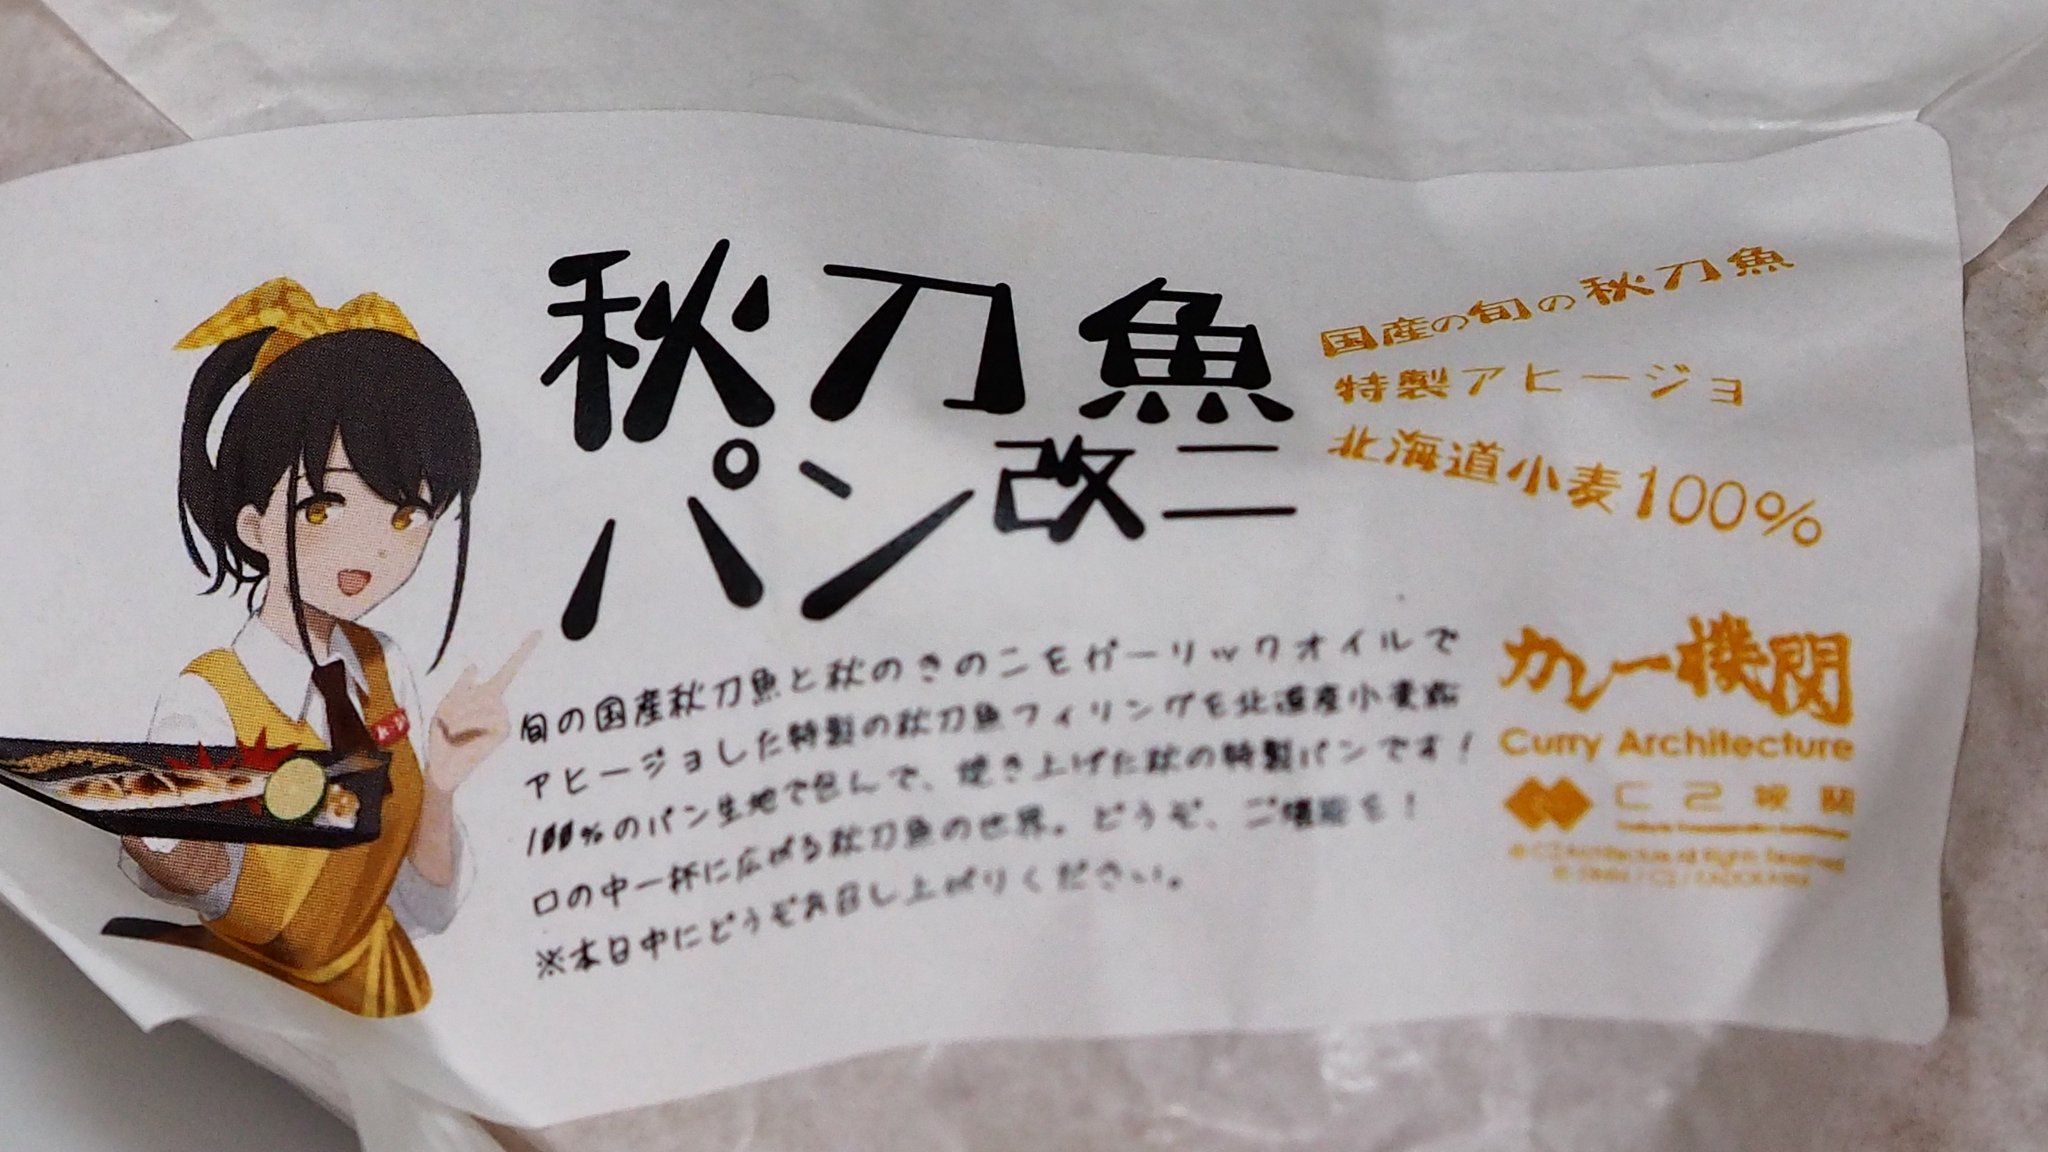 秋刀魚
パン改二
国産の旬の秋刀魚
特製アヒージョ
北海道小麦100%
旬の国産秋刀魚と秋のきのこをガーリックオイルで
アヒージョした特製の秋刀魚フィリングを北海道産小麦粉
100%のパン生地で包んで、焼き上げた秋の特製パンです！
口の中一杯に広がる秋刀魚の世界。どうぞ、ご堪能を！
※本日中にどうぞお召し上がりください。
カレー機関
Curry Architecture
C2機関
© C2 Architecture All Rights Reserved.